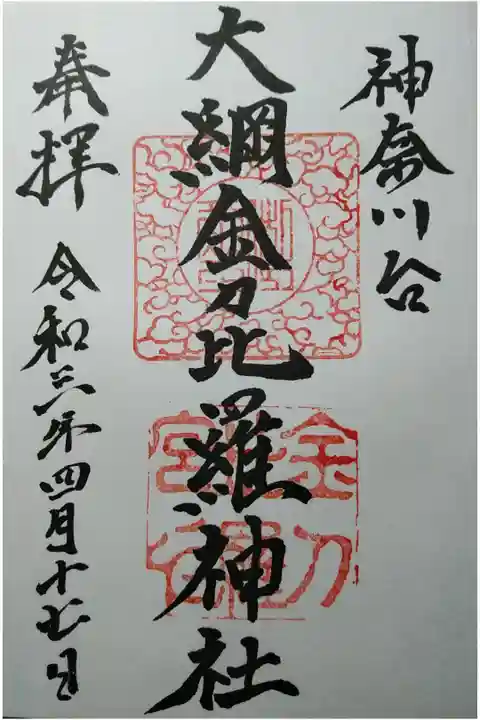 神奈川台
大綱金刀比羅神社
奉拝
令和三年四月十七日